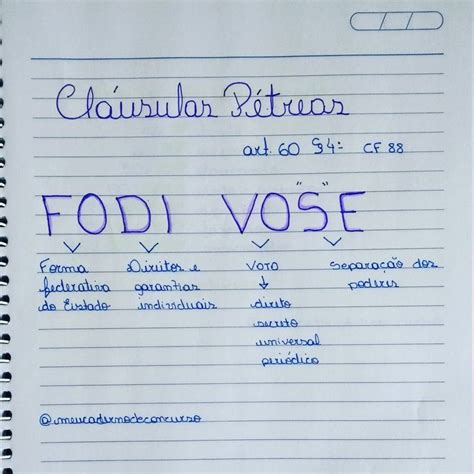 Cláusulas Pétreas
art. 60 § 4º CF 88
FODI VO"S"E
Forma Direitos e Voto Separação dos
federativa garantias ↓ poderes
do Estado individuais direto
secreto
universal
periódico
@meucadernodeconcurso